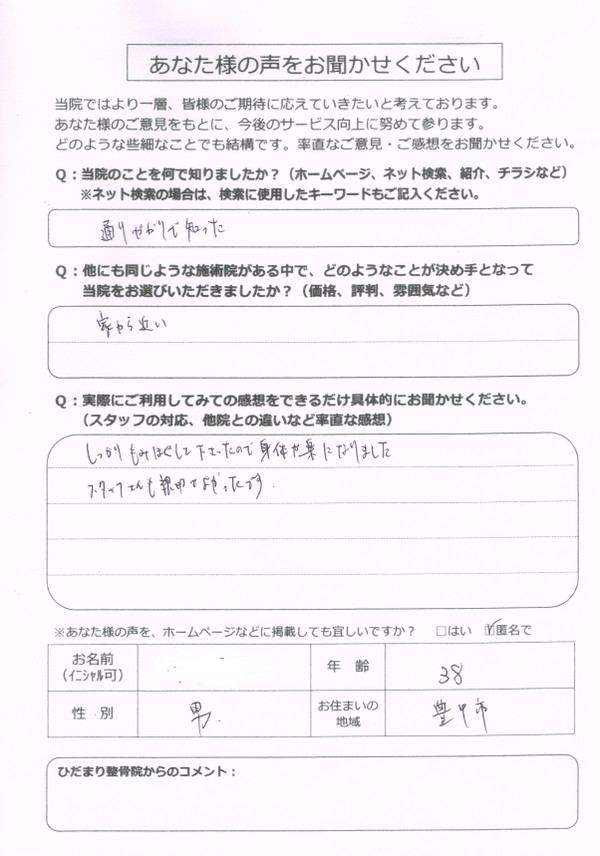 あなた様の声をお聞かせください
当院ではより一層、皆様のご期待に応えていきたいと考えております。
あなた様のご意見をもとに、今後のサービス向上に努めて参ります。
どのような些細なことでも結構です。率直なご意見・ご感想をお聞かせください。
Q：当院のことを何で知りましたか？（ホームページ、ネット検索、紹介、チラシなど）
※ネット検索の場合は、検索に使用したキーワードもご記入ください。
通りがかりで知った
Q：他にも同じような施術院がある中で、どのようなことが決め手となって
当院をお選びいただきましたか？（価格、評判、雰囲気など）
家から近い
Q：実際にご利用してみての感想をできるだけ具体的にお聞かせください。
（スタッフの対応、他院との違いなど率直な感想）
しっかりもみほぐして下さったので身体が楽になりました
スタッフさんも親切でよかったです
※あなた様の声を、ホームページなどに掲載しても宜しいですか？ □はい ☑匿名で
お名前 年 齢 38
（ｲﾆｼｬﾙ可）
性 別 男. お住まいの 豊中市
地域
ひだまり整骨院からのコメント：